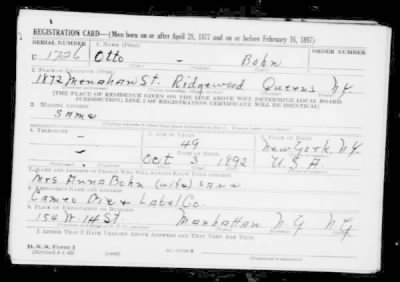 REGISTRATION CARD—(Men born on or after April 28, 1877 and on or before February 16, 1897)
SERIAL NUMBER 1. NAME (Print) ORDER NUMBER
U 1726 Otto - Bohn
2. PLACE OF RESIDENCE (Print)
1872 Menahan St. Ridgewood Queens N.Y.
[THE PLACE OF RESIDENCE GIVEN ON THE LINE ABOVE WILL DETERMINE LOCAL BOARD
JURISDICTION; LINE 2 OF REGISTRATION CERTIFICATE WILL BE IDENTICAL]
3. MAILING ADDRESS
Same
4. TELEPHONE 5. AGE IN YEARS 6. PLACE OF BIRTH
- 49 New York, N.Y.
DATE OF BIRTH
- Oct 3 1892 U.S.A.
7. NAME AND ADDRESS OF PERSON WHO WILL ALWAYS KNOW YOUR ADDRESS
Mrs Anna Bohn (wife) same
8. EMPLOYER'S NAME AND ADDRESS
Cameo Die & Label Co.
9. PLACE OF EMPLOYMENT OR BUSINESS
154 W. 14 St. Manhattan N.Y. N.Y.
I AFFIRM THAT I HAVE VERIFIED ABOVE ANSWERS AND THAT THEY ARE TRUE.
D. S. S. Form 1
(Revised 4-1-42)